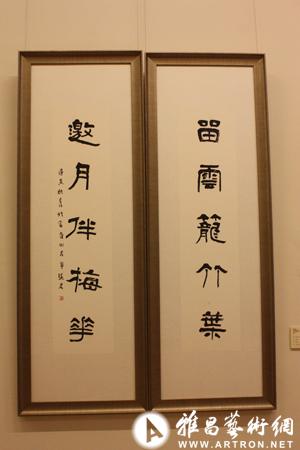 留雲籠竹葉
邀月伴梅華
雅昌藝術網
WWW.ARTRON.NET